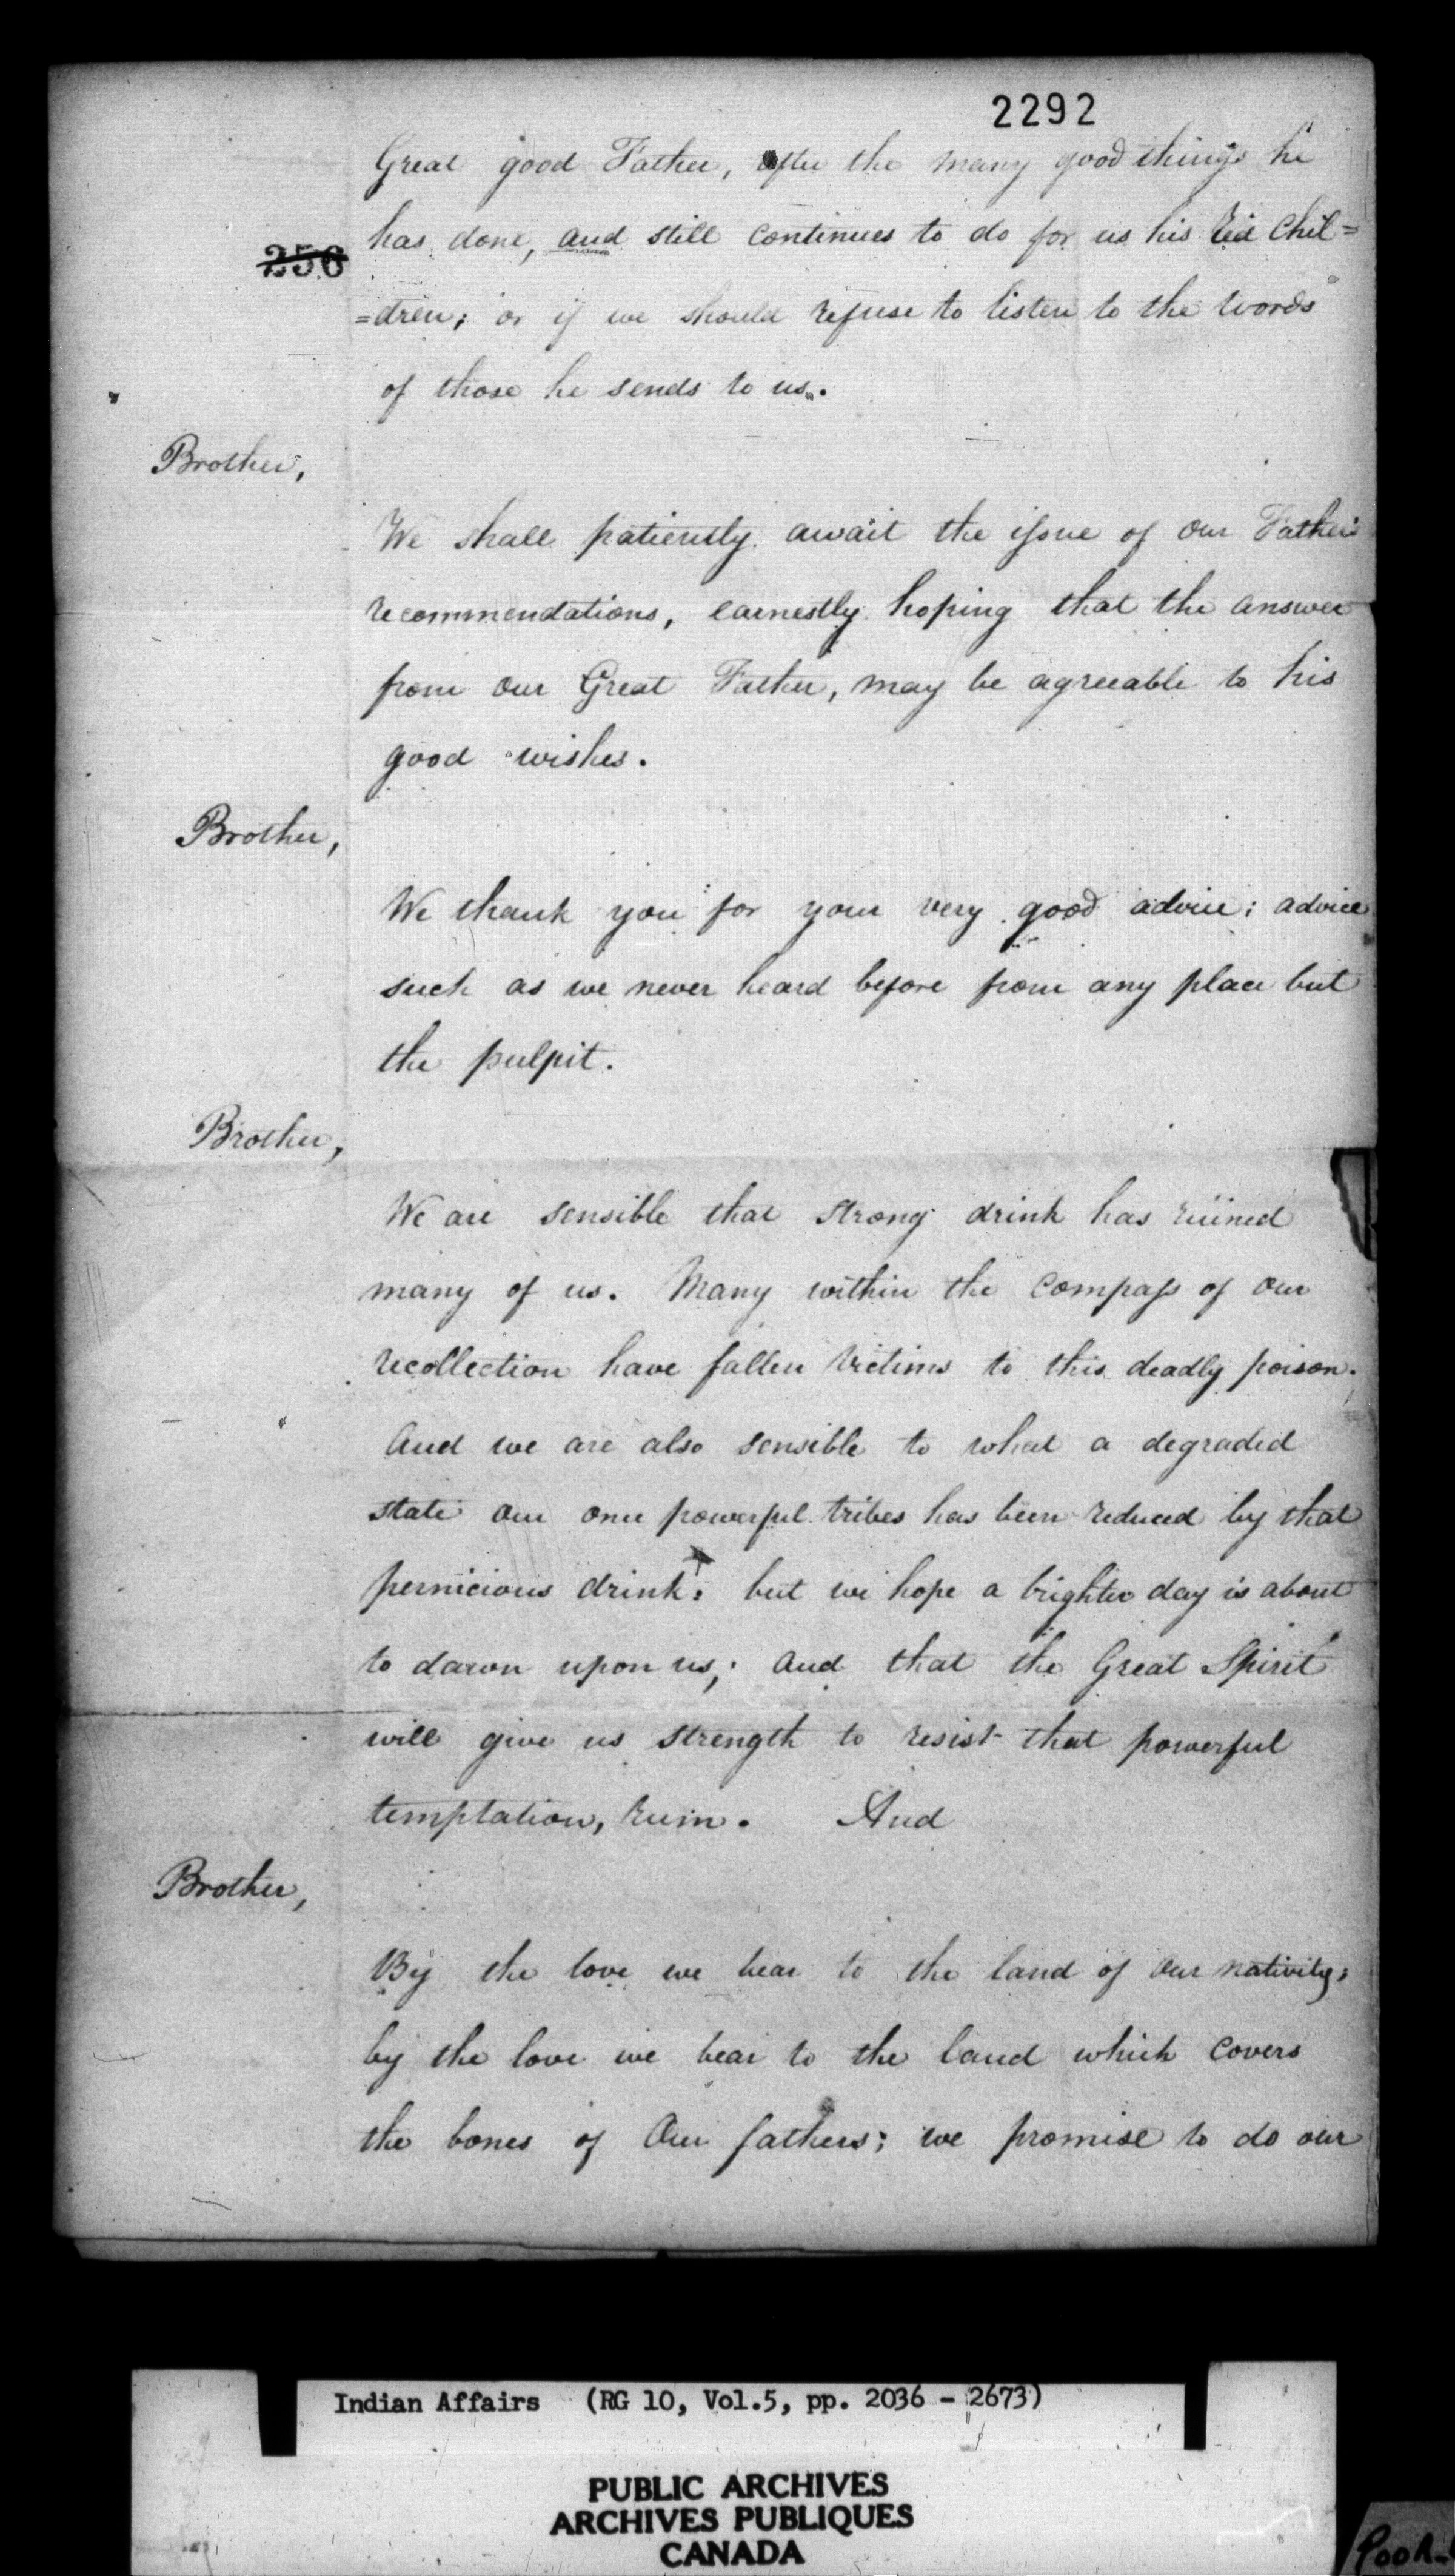 2292
Great good Father, after the many good things he
has done, and still continues to do for us his Red Chil=
256
=dren; or if we should refuse to listen to the words
of those he sends to us.
Brother,
We shall patiently await the issue of our Father's
recommendations, earnestly hoping that the answer
from our Great Father, may be agreeable to his
good wishes.
Brother,
We thank you for your very good advice; advice
such as we never heard before from any place but
the pulpit.
Brother,
We are sensible that strong drink has ruined
many of us. Many within the compass of our
recollection have fallen victims to this deadly poison.
And we are also sensible to what a degraded
state our once powerful tribes has been reduced by that
pernicious drink: but we hope a brighter day is about
to dawn upon us; and that the Great Spirit
will give us strength to resist that powerful
temptation, rum. And
Brother,
By the love we bear to the land of our nativity;
by the love we bear to the land which covers
the bones of Our fathers; we promise to do our
Indian Affairs (RG 10, Vol.5, pp. 2036 - 2673)
PUBLIC ARCHIVES
ARCHIVES PUBLIQUES
CANADA